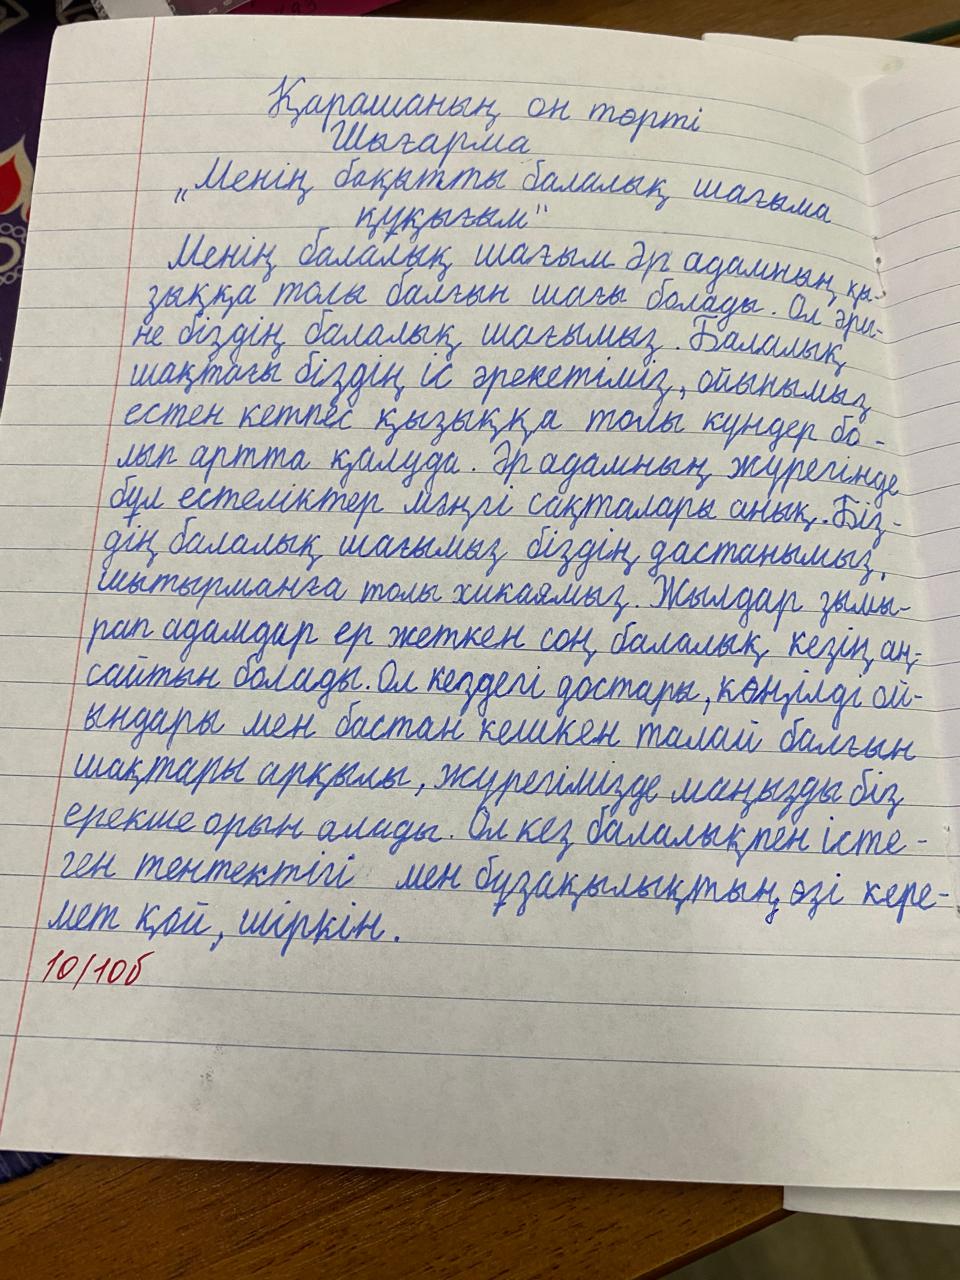 Қарашаның он төрті
Шығарма
"Менің бақытты балалық шағыма
құқығым"
Менің балалық шағым Әр адамның қы-
зыққа толы балғын шағы болады. Ол әри-
не біздің балалық шағымыз. Балалық
шақтағы біздің іс әрекетіміз, ойынымыз
естен кетпес қызыққа толы күндер бо-
лып артта қалуда. Әр адамның жүрегінде
бұл естеліктер мәңгі сақталары анық. Біз-
дің балалық шағымыз біздің дастанымыз,
шытырманға толы хикаямыз. Жылдар зымы-
рап адамдар ер жеткен соң балалық кезің аң-
сайтын болады. Ол кездегі достары, көңілді ой-
ындары мен бастан кешкен талай балғын
шақтары арқылы, жүрегімізде маңызды біз
ерекше орын алады. Ол кез балалықпен істе-
ген тентектігі мен бұзақылықтың өзі кере-
мет қой, шіркін.
10/10б